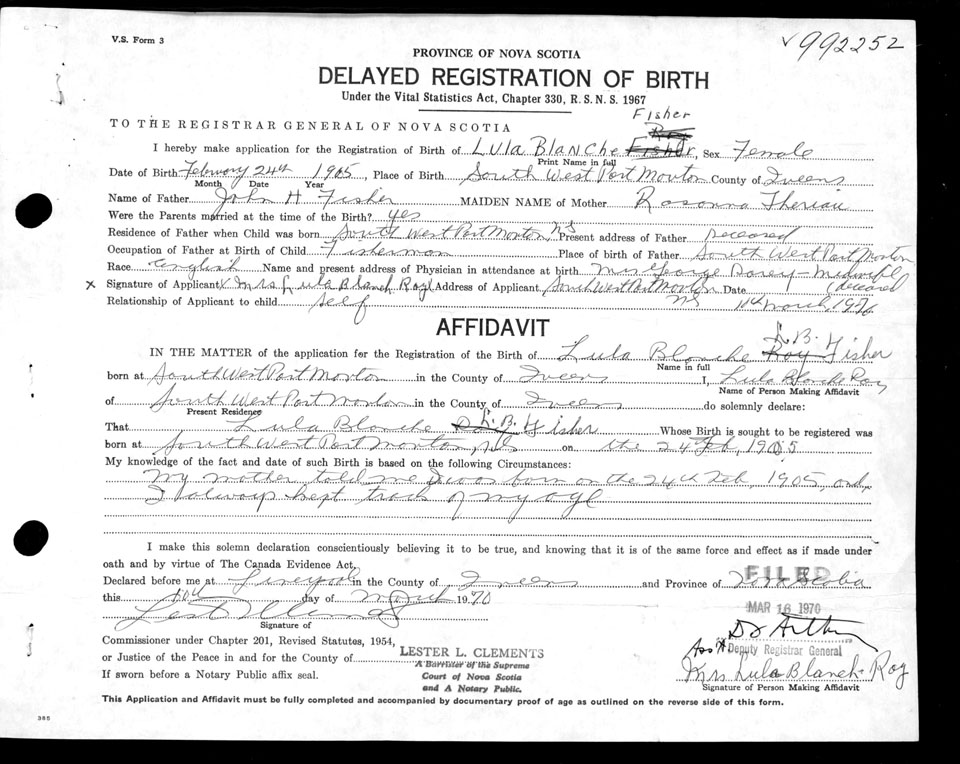 V.S. Form 3
√992252
PROVINCE OF NOVA SCOTIA
DELAYED REGISTRATION OF BIRTH
Under the Vital Statistics Act, Chapter 330, R.S.N.S. 1967
Fisher
TO THE REGISTRAR GENERAL OF NOVA SCOTIA Roy
I hereby make application for the Registration of Birth of LULA BLANCHE Fisher, Sex Female
Print Name in full
Date of Birth February 24th 1905, Place of Birth South West Port Morton County of Queens
Month Date Year
Name of Father John H Fisher MAIDEN NAME of Mother Rosanna Theriau
Were the Parents married at the time of the Birth? yes
Residence of Father when Child was born South West Port Morton, NS Present address of Father Deceased
Occupation of Father at Birth of Child Fisherman Place of birth of Father South West Port Morton
Race English Name and present address of Physician in attendance at birth Mrs George Dorey - Midwife
(deceased
x Signature of Applicant X Mrs Lula Blanch Roy Address of Applicant South West Port Morton Date
Relationship of Applicant to child self NS March 1970
AFFIDAVIT
L.B.
IN THE MATTER of the application for the Registration of the Birth of Lula Blanche Roy Fisher
Name in full
born at South West Port Morton in the County of Queens I, Lula Blanche Roy
Name of Person Making Affidavit
of South West Port Morton in the County of Queens do solemnly declare:
Present Residence
That Lula Blanche L.B. Fisher Whose Birth is sought to be registered was
born at South West Port Morton, NS on the 24 Feb, 1905
My knowledge of the fact and date of such Birth is based on the following Circumstances:
My mother told me I was born on the 24th Feb, 1905, and
I always kept track of my age
I make this solemn declaration conscientiously believing it to be true, and knowing that it is of the same force and effect as if made under
oath and by virtue of The Canada Evidence Act.
Declared before me at Liverpool in the County of Queens and Province of Nova Scotia
FILED
this 10th day of March 1970
MAR 16 1970
Signature of
Commissioner under Chapter 201, Revised Statutes, 1954,
Ass't Deputy Registrar General
or Justice of the Peace in and for the County of
LESTER L. CLEMENTS
A Barrister of the Supreme
Court of Nova Scotia
and A Notary Public.
If sworn before a Notary Public affix seal.
Mrs Lula Blanch Roy
Signature of Person Making Affidavit
This Application and Affidavit must be fully completed and accompanied by documentary proof of age as outlined on the reverse side of this form.
385